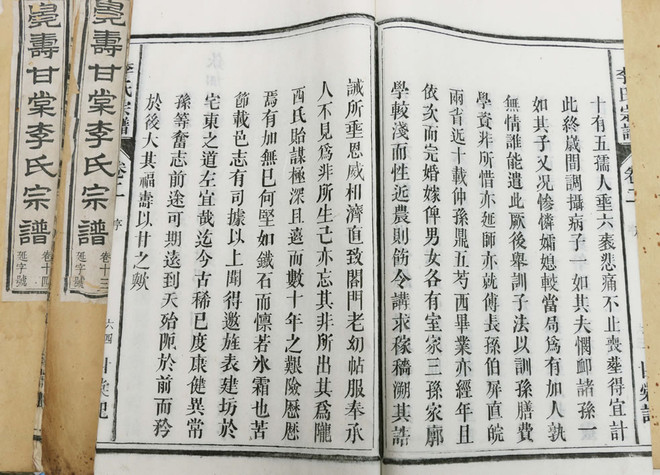 十有五孺人垂六袠悲痛不止喪塟得宜計
此終歲間調攝病子一如其夫憫卹諸孫一
如其子又况慘憐孀媳較當局爲有如人孰
無情誰能遣此厥後舉訓子法以訓孫膳費
學資非所惜亦延師亦就傅長孫伯屏直皖
兩省近十載仲孫鼎五芍西畢業亦經年且
依次而完婚嫁俾男女各有室家三孫家廓
學較淺而性近農則飭令講求稼穡溯其誥
誡所垂恩威相濟直致閤門老幼帖服奉承
人不見爲非所生己亦忘其非所出其爲隴
西氏貽謀極深且遠而數十年之艱險歷歷
焉有加無已何堅如鐵石而懔若氷霜也苦
節載邑志有司據以上聞得邀旌表建坊於
宅東之道左宜哉迄今古稀已度康健異常
孫等奮志前途可期遠到天殆阨於前而矜
於後大其福壽以甘之歟
李氏宗譜
卷二
序
六四
壽甘棠李氏宗譜
卷十三
字號
壽甘棠李氏宗譜
卷十四
字號